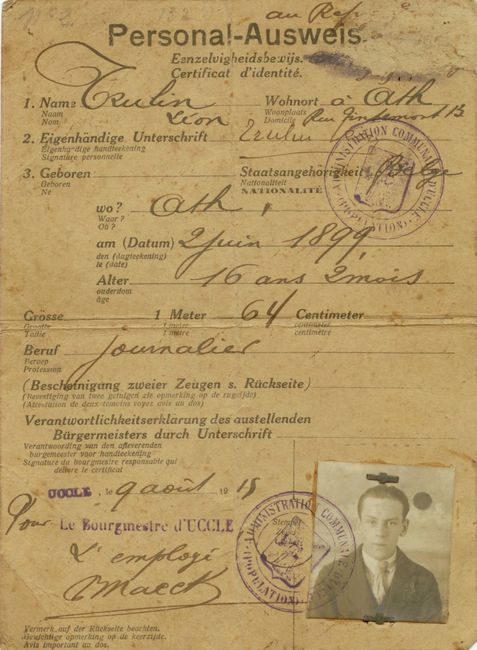 au Ref
Personal-Ausweis
Eenzelvigheidsbewijs.
Certificat d'identité.
1. Name Trulin Wohnort à Ath
Naam Léon Woonplaats
Nom Domicile Rue 13
2. Eigenhändige Unterschrift Trulin
Eigenhandige handteekening
Signature personnelle
3. Geboren Staatsangehörigkeit Belge
Geboren Nationaliteit
Né NATIONALITÉ
wo? Ath,
Waar?
Où?
am (Datum) 2 juin 1899
den (dagteekening)
le (date)
Alter 16 ans 2 mois
ouderdom
âge
Grösse 1 Meter 64 Centimeter
Grootte 1 meter centimeter
Taille 1 mètre centimètre
Beruf journalier
Beroep
Profession
(Bescheinigung zweier Zeugen s. Rückseite)
(Bevestiging van twee getuigen zie opmerking op de rugzijde)
(Attestation de deux temoins voyez avis au dos)
Verantwortlichkeitserklärung des austellenden
Bürgermeisters durch Unterschrift
Verantwoording van den afleverenden
burgemeester voor handteekening
Signature du bourgmestre responsable qui
délivre le certificat
UCCLE, le 9 août 1915
Pour Le Bourgmestre d'UCCLE
L'employé
Maeck
Stempel
ADMINISTRATION COMMUNALE D'UCCLE
(POPULATION)
ADMINISTRATION COMMUNALE
(POPULATION)
Vermerk auf der Rückseite beachten.
Gewichtige opmerking op de keerzijde.
Avis important au dos.